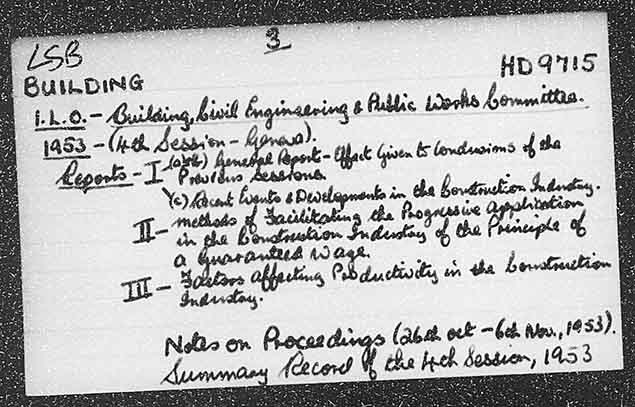 LSB
3
HD9715
BUILDING
I.L.O. - Building, Civil Engineering & Public Works Committee.
1953 - (4th Session - Geneva).
Reports - I (a+b) General Report - Effect Given to Conclusions of the
Previous Sessions.
(c) Recent Events & Developments in the Construction Industry.
II - Methods of Facilitating the Progressive Application
in the Construction Industry of the Principle of
a Guaranteed Wage.
III - Factors Affecting Productivity in the Construction
Industry.
Notes on Proceedings (26th Oct - 6th Nov., 1953).
Summary Record of the 4th Session, 1953